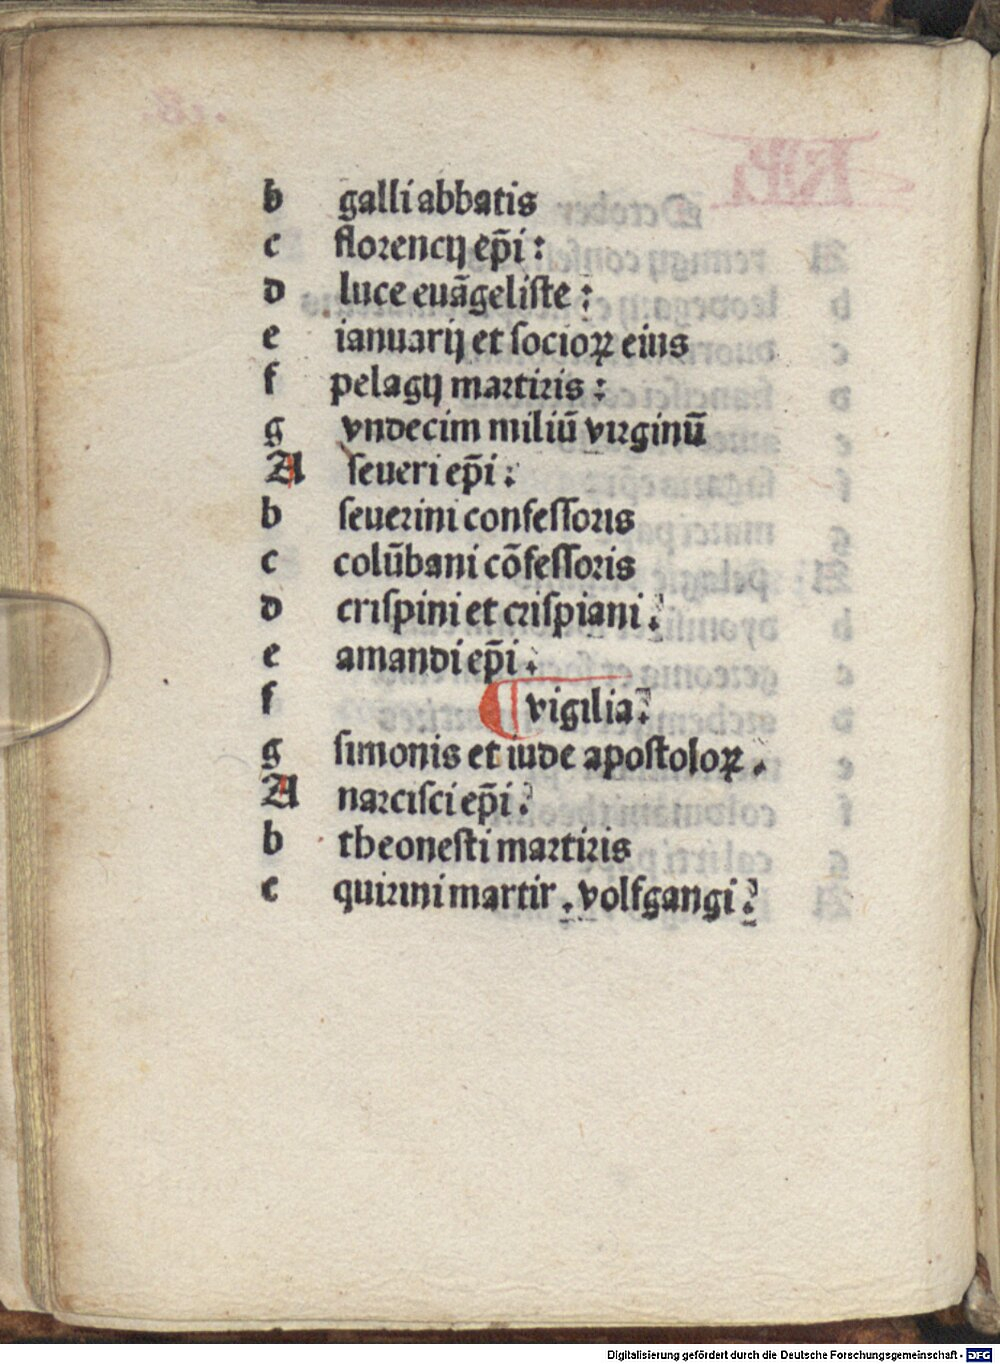 b galli abbatis
c florencij ep̃i :
d luce euãgeliſte :
e ianuarij et ſocioꝝ eius
f pelagij martiris :
g vndecim miliũ virginũ
A ſeueri ep̃i :
b ſeuerini confeſſoris
c colũbani cõfeſſoris
d criſpini et criſpiani .
e amandi ep̃i .
f vigilia .
g ſimonis et iude apoſtoloꝝ .
A narciſci ep̃i .
b theoneſti martiris
c quirini martir . volfgangi .
Digitalisierung gefördert durch die Deutsche Forschungsgemeinschaft - DFG